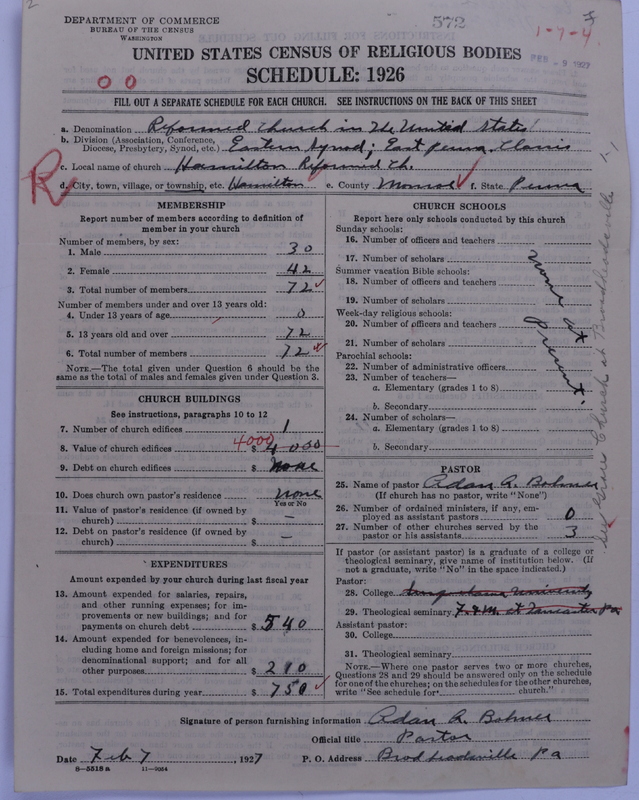 DEPARTMENT OF COMMERCE
BUREAU OF THE CENSUS
WASHINGTON
572
1-7-4
FEB -9 1927
UNITED STATES CENSUS OF RELIGIOUS BODIES
SCHEDULE: 1926
0 0
FILL OUT A SEPARATE SCHEDULE FOR EACH CHURCH. SEE INSTRUCTIONS ON THE BACK OF THIS SHEET
a. Denomination Reformed Church in The United States
b. Division (Association, Conference, Diocese, Presbytery, Synod, etc.) Eastern Synod; East Penna. Classis
c. Local name of church Hamilton Reformed Ch.
R
d. City, town, village, or township, etc. Hamilton e. County Monroe f. State Penna
MEMBERSHIP
Report number of members according to definition of member in your church
Number of members, by sex:
1. Male 30
2. Female 42
3. Total number of members 72
Number of members under and over 13 years old:
4. Under 13 years of age 0
5. 13 years old and over 72
6. Total number of members 72
NOTE.—The total given under Question 6 should be the same as the total of males and females given under Question 3.
CHURCH BUILDINGS
See instructions, paragraphs 10 to 12
7. Number of church edifices 1
8. Value of church edifices $ 4000 4000
9. Debt on church edifices $ none
10. Does church own pastor's residence none
Yes or No
11. Value of pastor's residence (if owned by church) $ —
12. Debt on pastor's residence (if owned by church) $ —
EXPENDITURES
Amount expended by your church during last fiscal year
13. Amount expended for salaries, repairs, and other running expenses; for improvements or new buildings; and for payments on church debt $ 540
14. Amount expended for benevolences, including home and foreign missions; for denominational support; and for all other purposes $ 210
15. Total expenditures during year $ 750
CHURCH SCHOOLS
Report here only schools conducted by this church
Sunday schools:
16. Number of officers and teachers
17. Number of scholars
Summer vacation Bible schools:
18. Number of officers and teachers
19. Number of scholars
Week-day religious schools:
20. Number of officers and teachers
21. Number of scholars
Parochial schools:
22. Number of administrative officers
23. Number of teachers—
a. Elementary (grades 1 to 8)
b. Secondary
24. Number of scholars—
a. Elementary (grades 1 to 8)
b. Secondary
None at Present.
PASTOR
25. Name of pastor Adam A. Bohner
(If church has no pastor, write "None")
26. Number of ordained ministers, if any, employed as assistant pastors 0
27. Number of other churches served by the pastor or his assistants 3
If pastor (or assistant pastor) is a graduate of a college or theological seminary, give name of institution below. (If not a graduate, write "No" in the space indicated.)
Pastor:
28. College Susquehanna University
29. Theological seminary F. & M. at Lancaster Pa
Assistant pastor:
30. College
31. Theological seminary
NOTE.—Where one pastor serves two or more churches, Questions 28 and 29 should be answered only on the schedule for one of the churches; on the schedules for the other churches, write "See schedule for church."
Church at Brodheadsville
Signature of person furnishing information Adam A. Bohner
Official title Pastor
Date Feb 7, 1927 P. O. Address Brodheadsville Pa
8-5518 a 11-9064